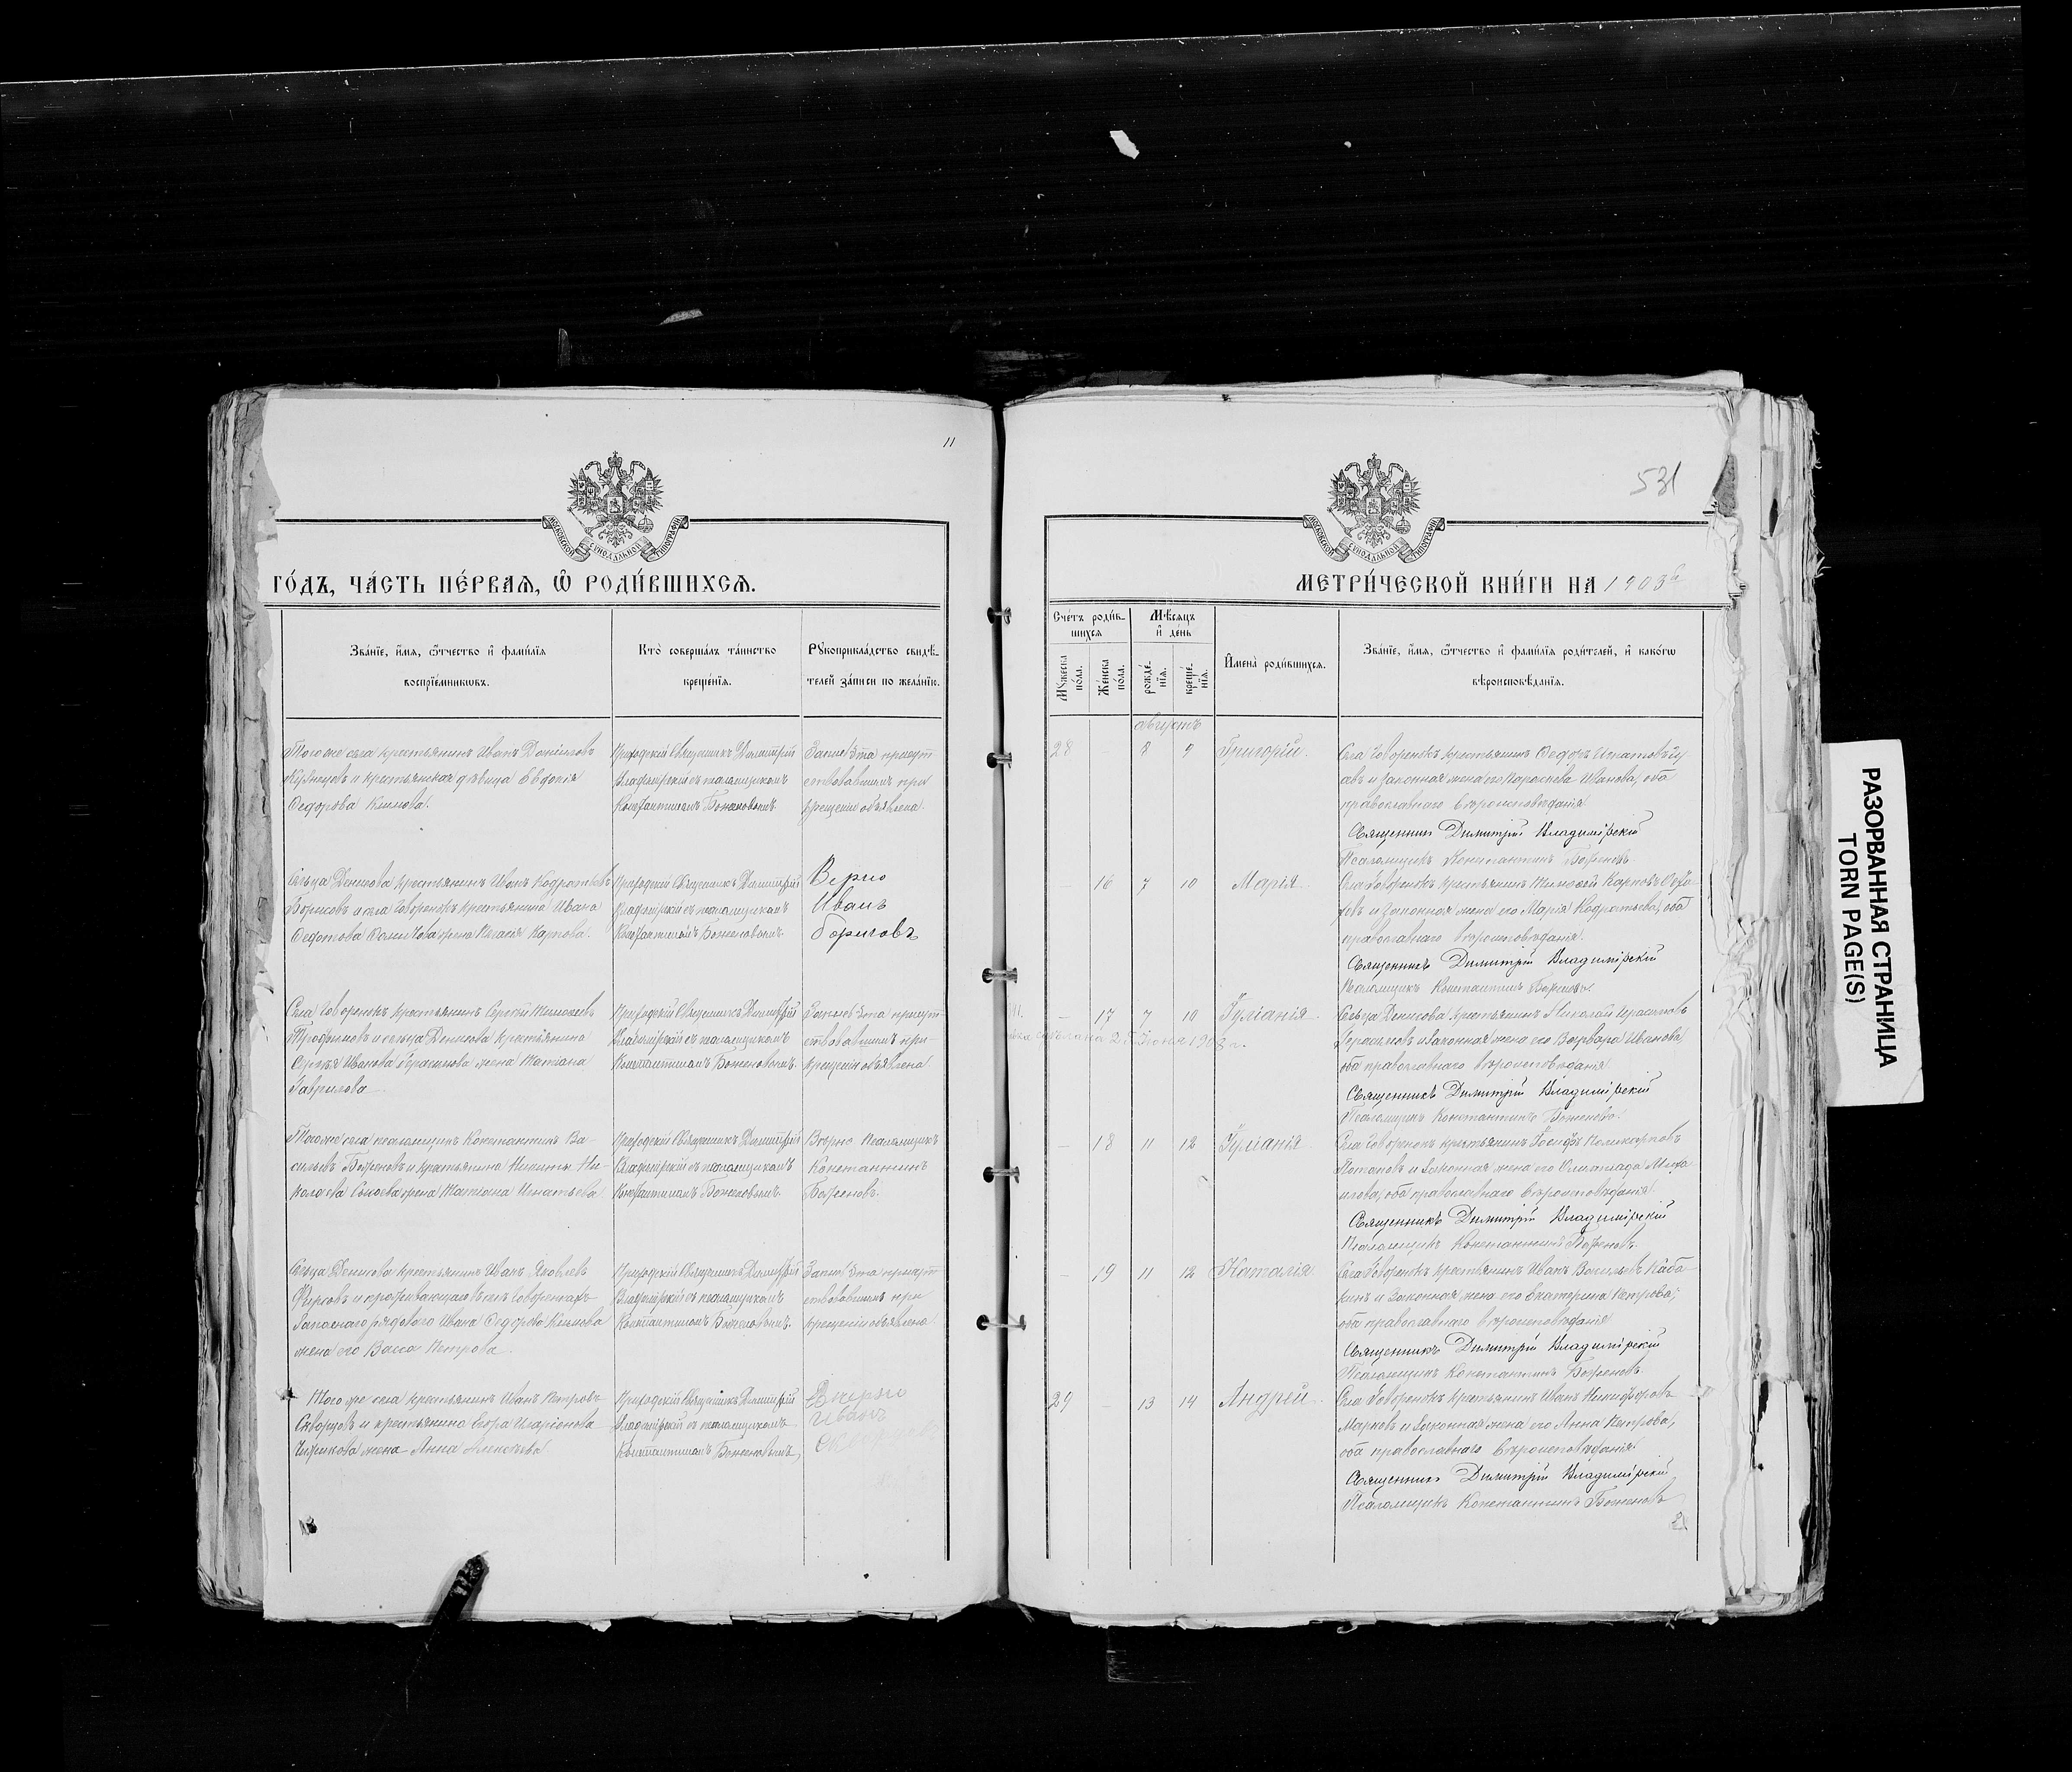 11
МОСКОВСКОЙ СУНОДАЛЬНОЙ ТИПОГРАФІИ
ГОДЪ, ЧАСТЬ ПЕРВАЯ, Ѿ РОДИВШИХСЯ.
Званїе, имя, ѿчество и фамилїя
воспрїемниковъ.
Кто совершалъ таинство
крещенїя.
Рукоприкладство свидѣ-
телей записи по желанїю.
Того же села крестьянинъ Иванъ Даниловъ
Кузнецовъ и крестьянская дѣвица Евдокія
Федорова Климова.
Приходскій Священникъ Димитрій
Владимірскій съ псаломщикомъ
Константиномъ Боженовымъ.
Запись эта присут
ствовавшимъ при
крещеніи объявлена.
Сельца Денисова крестьянинъ Иванъ Кодратьевъ
Борисовъ и села Говоренокъ крестьянина Ивана
Федотова жена Карпова.
Приходскій Священникъ Димитрій
Владимірскій съ псаломщикомъ
Константиномъ Боженовымъ.
Верно
Иванъ
Борисовъ
Села Говоренокъ крестьянинъ Сергій Тимофеевъ
Трофимовъ и сельца Денисова крестьянина
Сергѣя Иванова Герасимова жена Татіана
Гаврилова
Приходскій Священникъ Димитрій
Владимірскій съ псаломщикомъ
Константиномъ Боженовымъ.
Запись эта присут-
ствовавшимъ при-
крещеніи объявлена
Того же села псаломщикъ Константинъ Ва-
сильевъ Боженовъ и крестьянина Никиты Ни-
колаева жена Татіана Игнатьева.
Приходскій Священникъ Димитрій
Владимірскій съ псаломщикомъ
Константиномъ Боженовымъ.
Вѣрно Псаломщикъ
Константинъ
Боженовъ.
Сельца Денисова крестьянинъ Иванъ Яковлевъ
Фирсовъ и проживающаго въ селѣ Говоренкахъ
Запаснаго рядового Ивана Федорова Климова
жена его Васса Петрова.
Приходскій Священникъ Димитрій
Владимірскій съ псаломщикомъ
Константиномъ Боженовымъ.
Запись эта присут
ствовавшимъ при
крещеніи объявлена
Того же села крестьянинъ Иванъ Петровъ
Скворцовъ и крестьянина Егора Иларіонова
Чижикова жена Анна Алексѣева.
Приходскій Священникъ Димитрій
Владимірскій съ псаломщикомъ
Константиномъ Боженовымъ.
Иванъ
531
МОСКОВСКОЙ СУНОДАЛЬНОЙ ТИПОГРАФІИ
МЕТРИЧЕСКОЙ КНИГИ НА 1903й
Счетъ родив-
шихся
Мужеска
пола.
Женска
пола.
Мѣсяцъ
и день
рожде-
нїя.
креще-
нїя.
Имена родившихся.
Званїе, имя, ѿчество и фамилїя родителей, и какогѡ
вѣроисповѣданїя.
Августъ
28 – 8 9 Григорій.
Села Говоренокъ крестьянинъ Федоръ Игнатовъ
и законная жена его Параскева Иванова, оба
православнаго вѣроисповѣданія
Священникъ Димитрій Владимірскій
Псаломщикъ Константинъ Боженовъ.
– 16 7 10 Марія
Села Говоренокъ крестьянинъ Тимофей Карповъ
и законная жена его Марія Кодратьева, оба
православнаго вѣроисповѣданія.
Священникъ Димитрій Владимірскій
Псаломщикъ Константинъ Боженовъ.
– 17 7 10 Іуліанія.
Сельца Денисова крестьянинъ Николай Герасимовъ и законная жена его Варвара Иванова,
оба православнаго вѣроисповѣданія
Священникъ Димитрій Владимірскій
Псаломщикъ Константинъ Боженовъ.
– 18 11 12 Іуліанія
Села Говоренокъ крестьянинъ Іосифъ Поликарповъ
Потаповъ и законная жена его Олимпіада Миха-
илова, оба православнаго вѣроисповѣданія.
Священникъ Димитрій Владимірскій
Псаломщикъ Константинъ Боженовъ.
– 19 11 12 Наталія.
Села Говоренокъ крестьянинъ Иванъ Васильевъ Каба-
кинъ и законная жена его Екатерина Петрова,
оба православнаго вѣроисповѣданія
Священникъ Димитрій Владимірскій
Псаломщикъ Константинъ Боженовъ.
29 – 13 14 Андрей
Села Говоренокъ крестьянинъ Иванъ Никифоровъ
Марковъ и законная жена его Анна Петрова,
оба православнаго вѣроисповѣданія.
Священникъ Димитрій Владимірскій
Псаломщикъ Константинъ Боженовъ
РАЗОРВАННАЯ СТРАНИЦА
TORN PAGE(S)